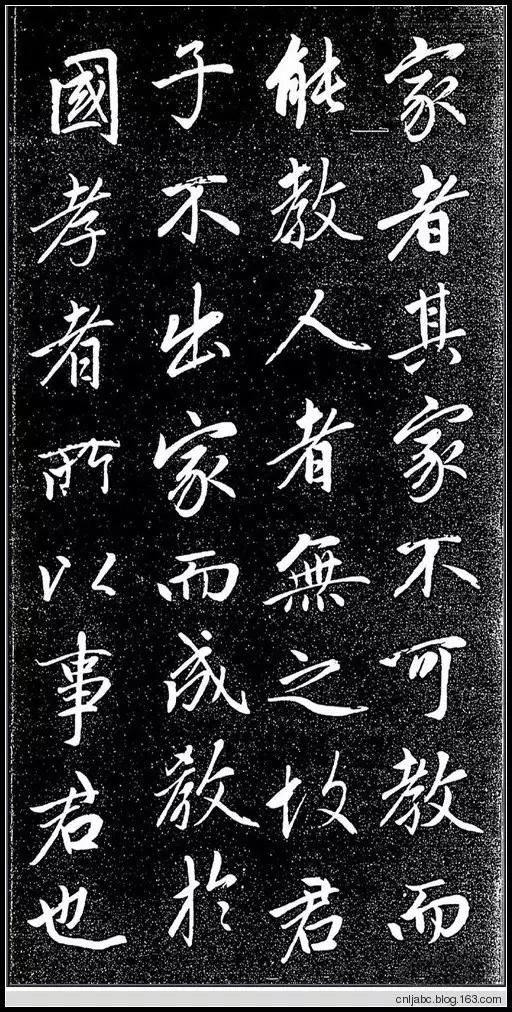 家者其家不可教而
能教人者無之故君
子不出家而成教於
國孝者所以事君也
cnljabc.blog.163.com